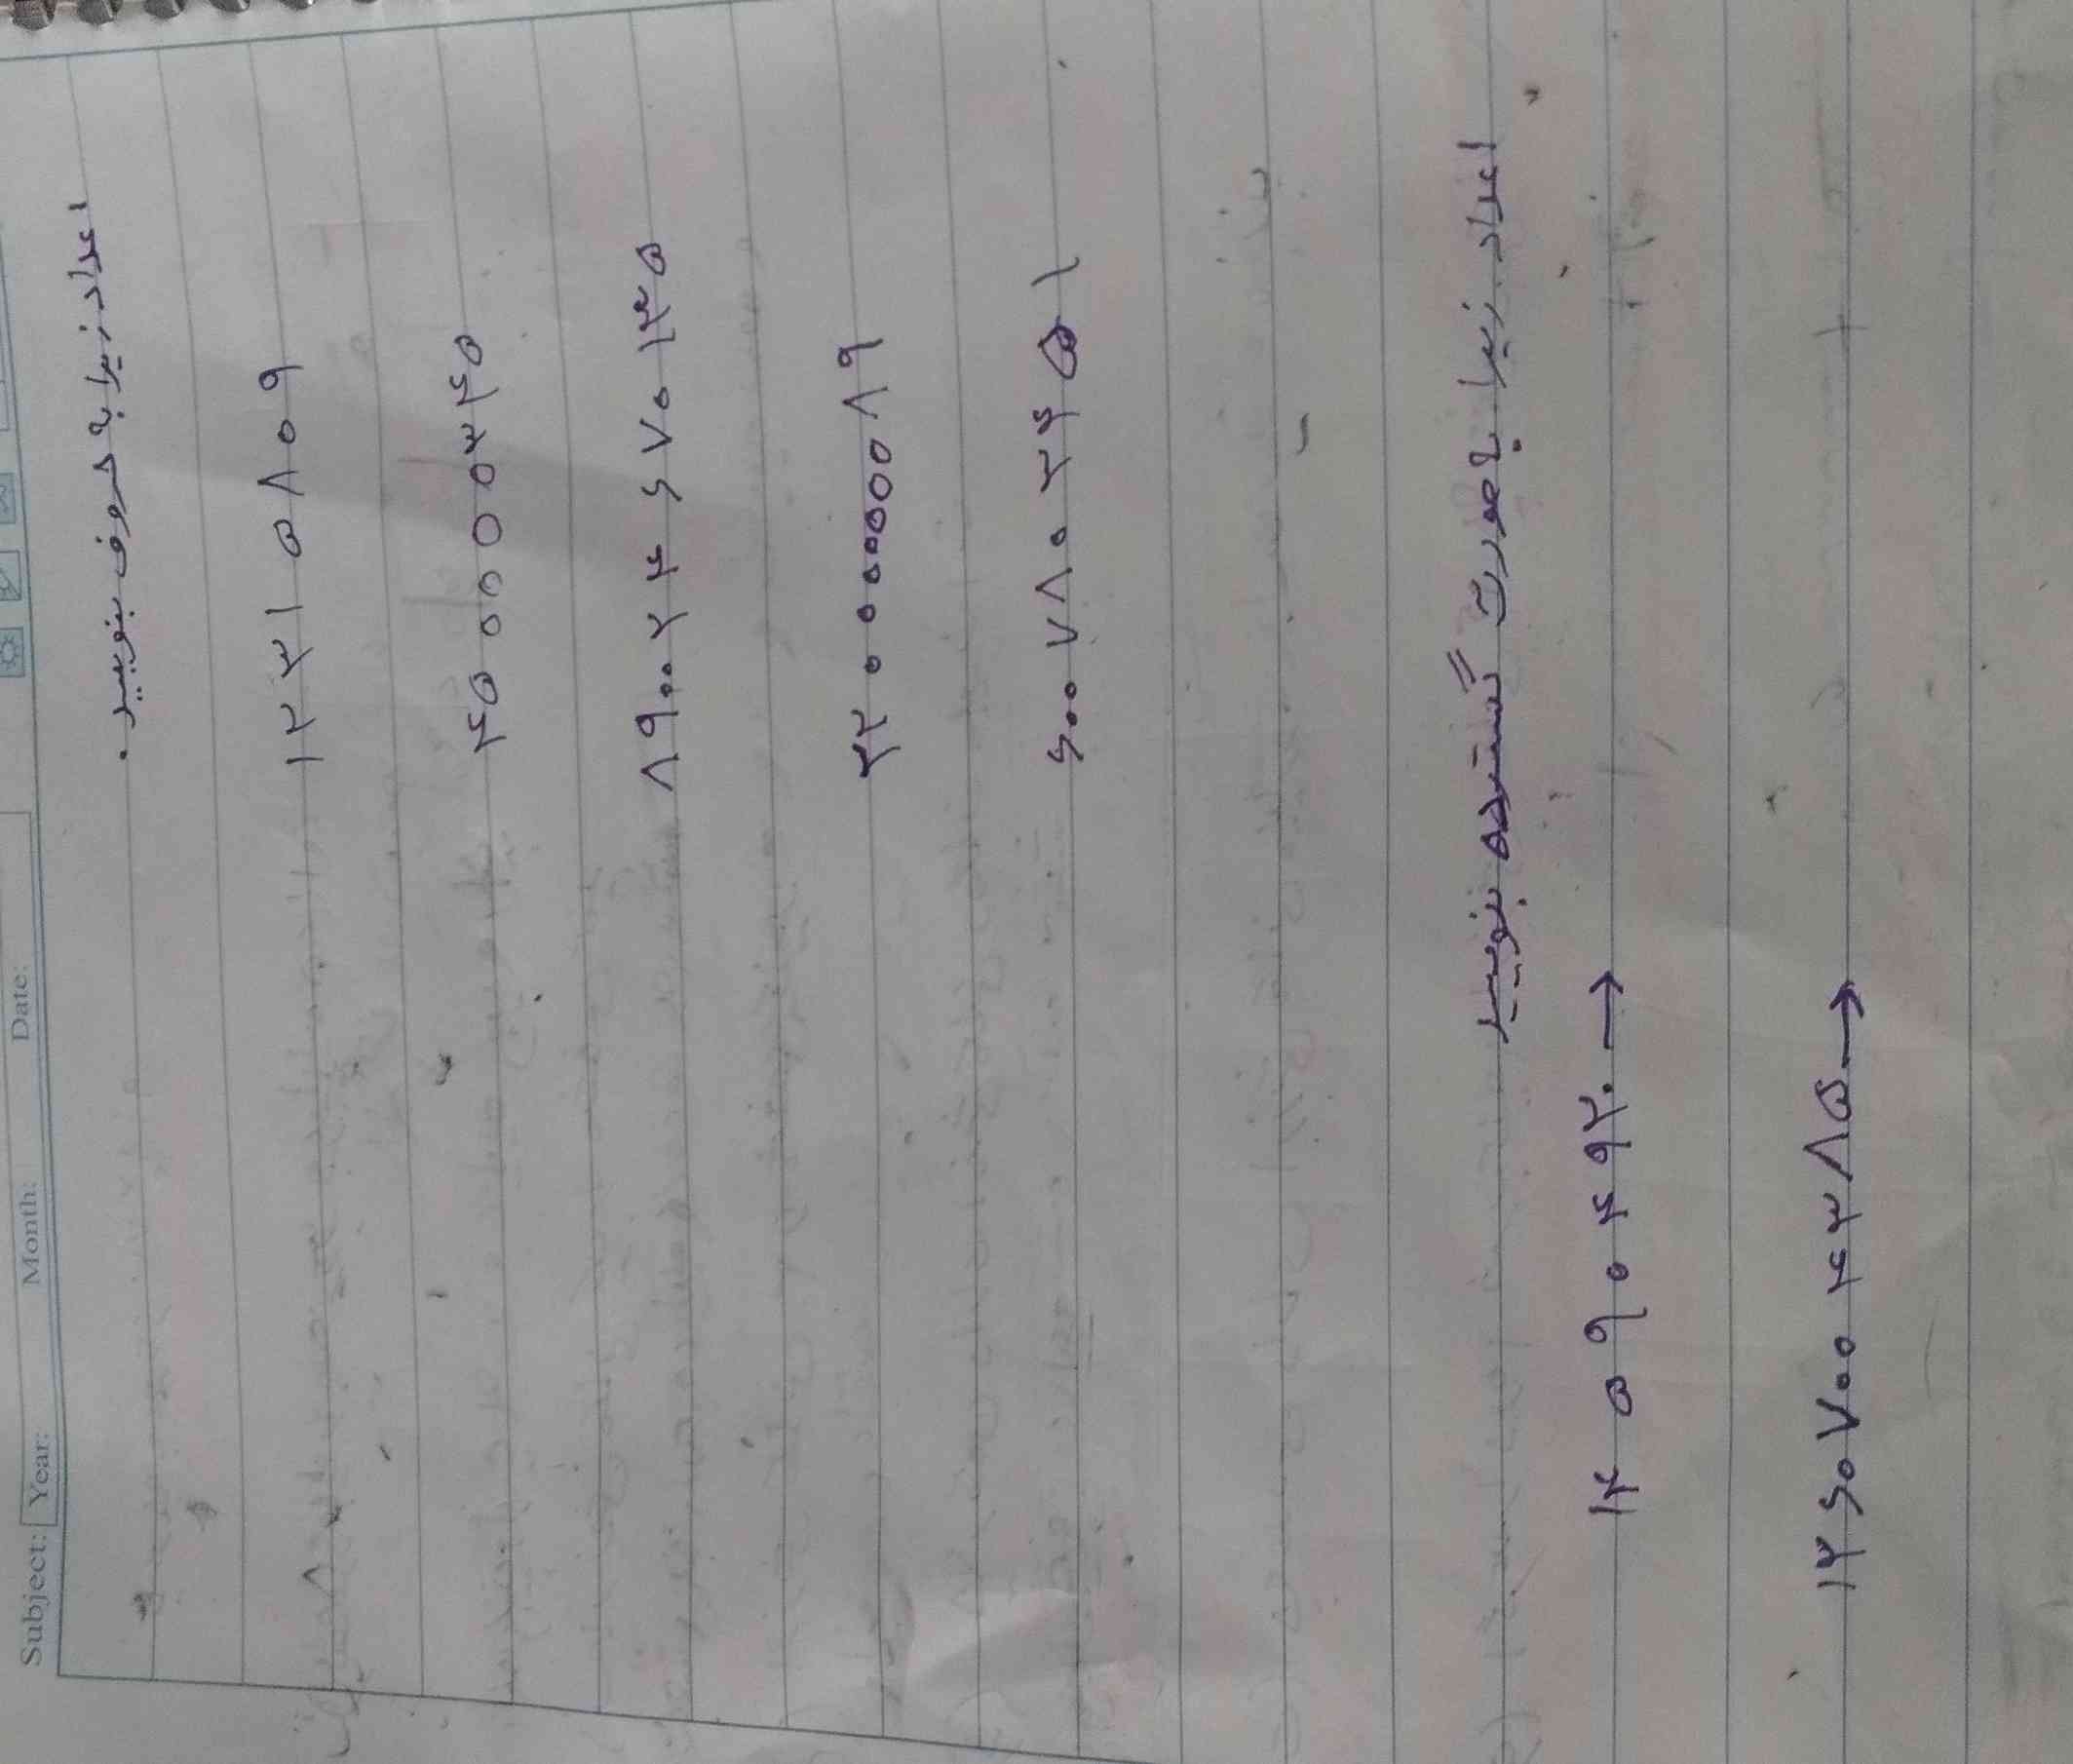 Subject: Year: Month: Date:
اعداد زیرا به حروف بنویسید .
۱۲۳۱۵۸۰۹
۴۰۰۰۰۰۳۴۵
۸۹۰۰۲۴۶۷۰۱۳۵
۳۲۰۰۰۰۰۰۰۸۹
۶۰۰۷۸۰۲۴۵۱
اعداد زیرا به صورت گسترده بنویسید
۱۴۵۹۰۴۹۲۰ →
۱۲۶۰۷۰۰۴۳۸۵ →